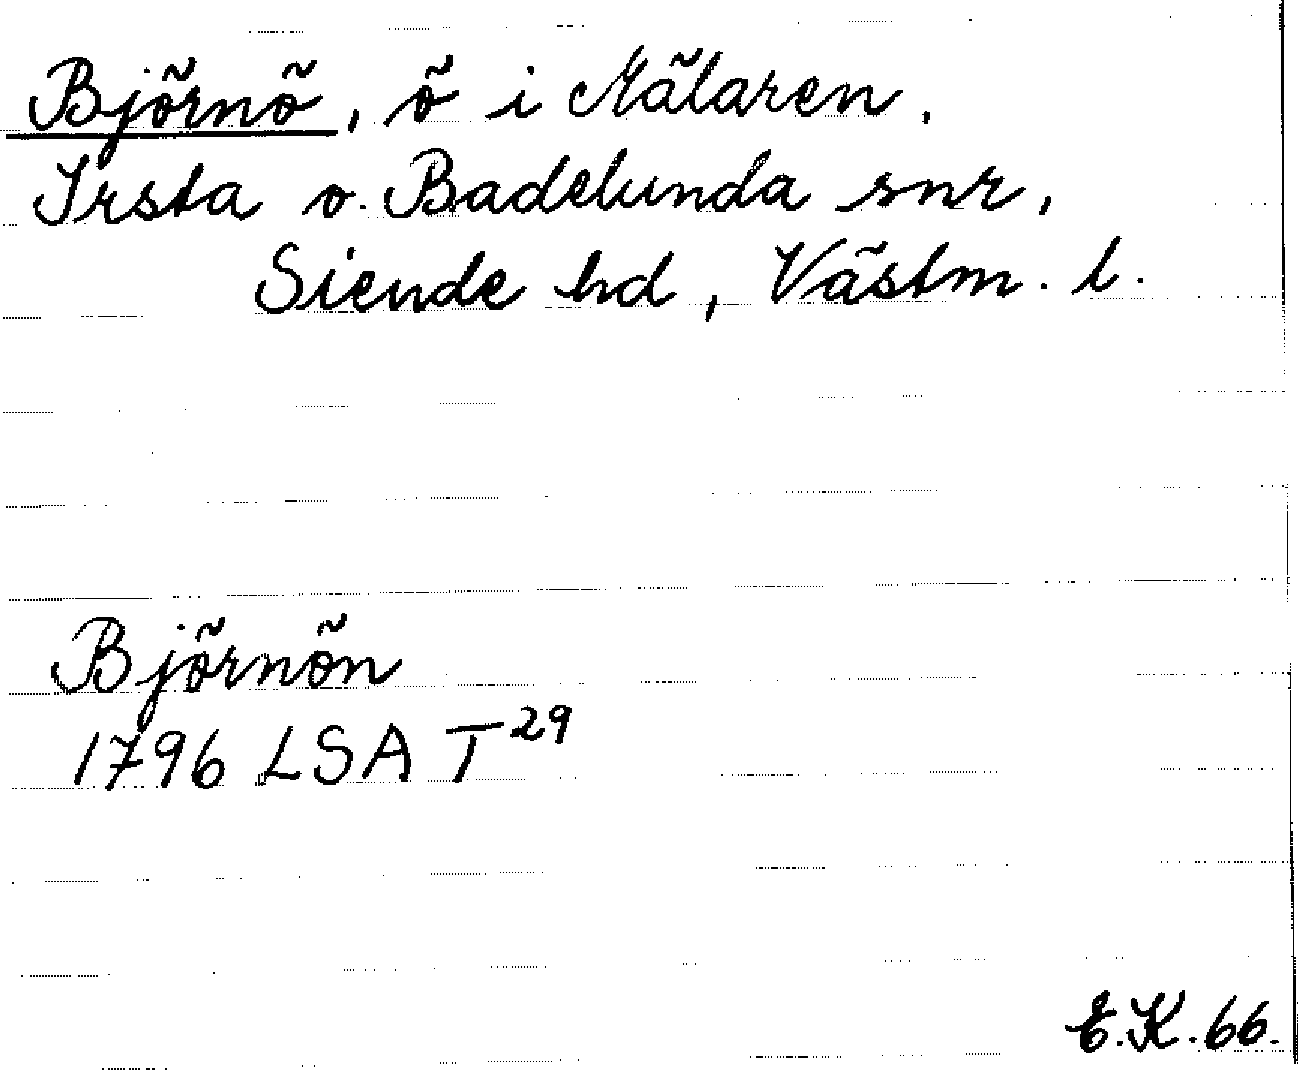 Björnö, ö i Mälaren.
Irsta o. Badelunda snr,
Siende hd, Västm. l.
Björnön
1796 LSA T 29
E.K. 66.